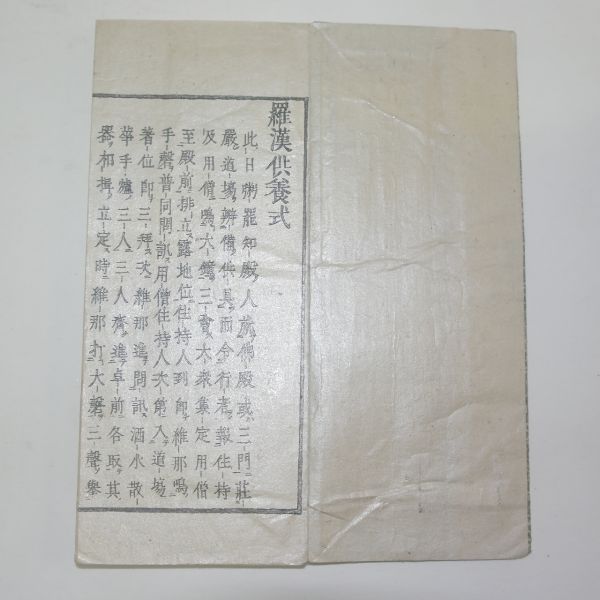 羅漢供養式
此日粥罷知殿人前佛殿或三門莊
嚴道場辨備供具而令行者報住持
及用僧鳴大鐘三會大衆集定用僧
至殿前排立露地位住持人到即維那鳴
手磬普同問訊用僧住持人次第入道場
著位即三拜次維那進問訊洒水散
華手爐三人三人齊進卓前各取其
器和揖立定時維那打大磬三聲擧